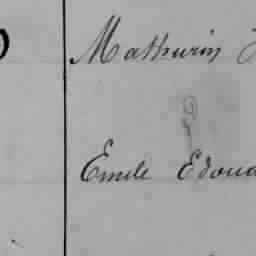 Mathurin
Emile Edoua